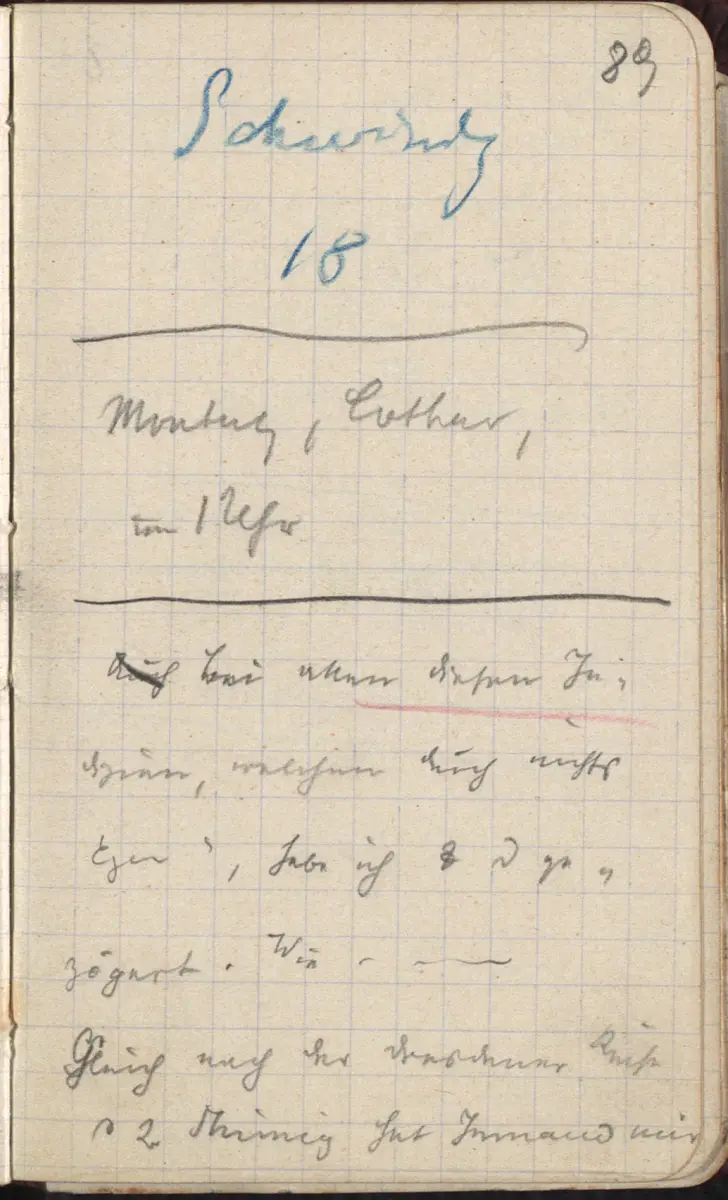 89
18
Montag, Lothar,
um 1 Uhr
Auch bei allen diesen In-
dizien, welchen doch nichts
, habe ich ge-
zögert. Wie
Gleich nach der Dresdener Reise
2 hat Jemand mir